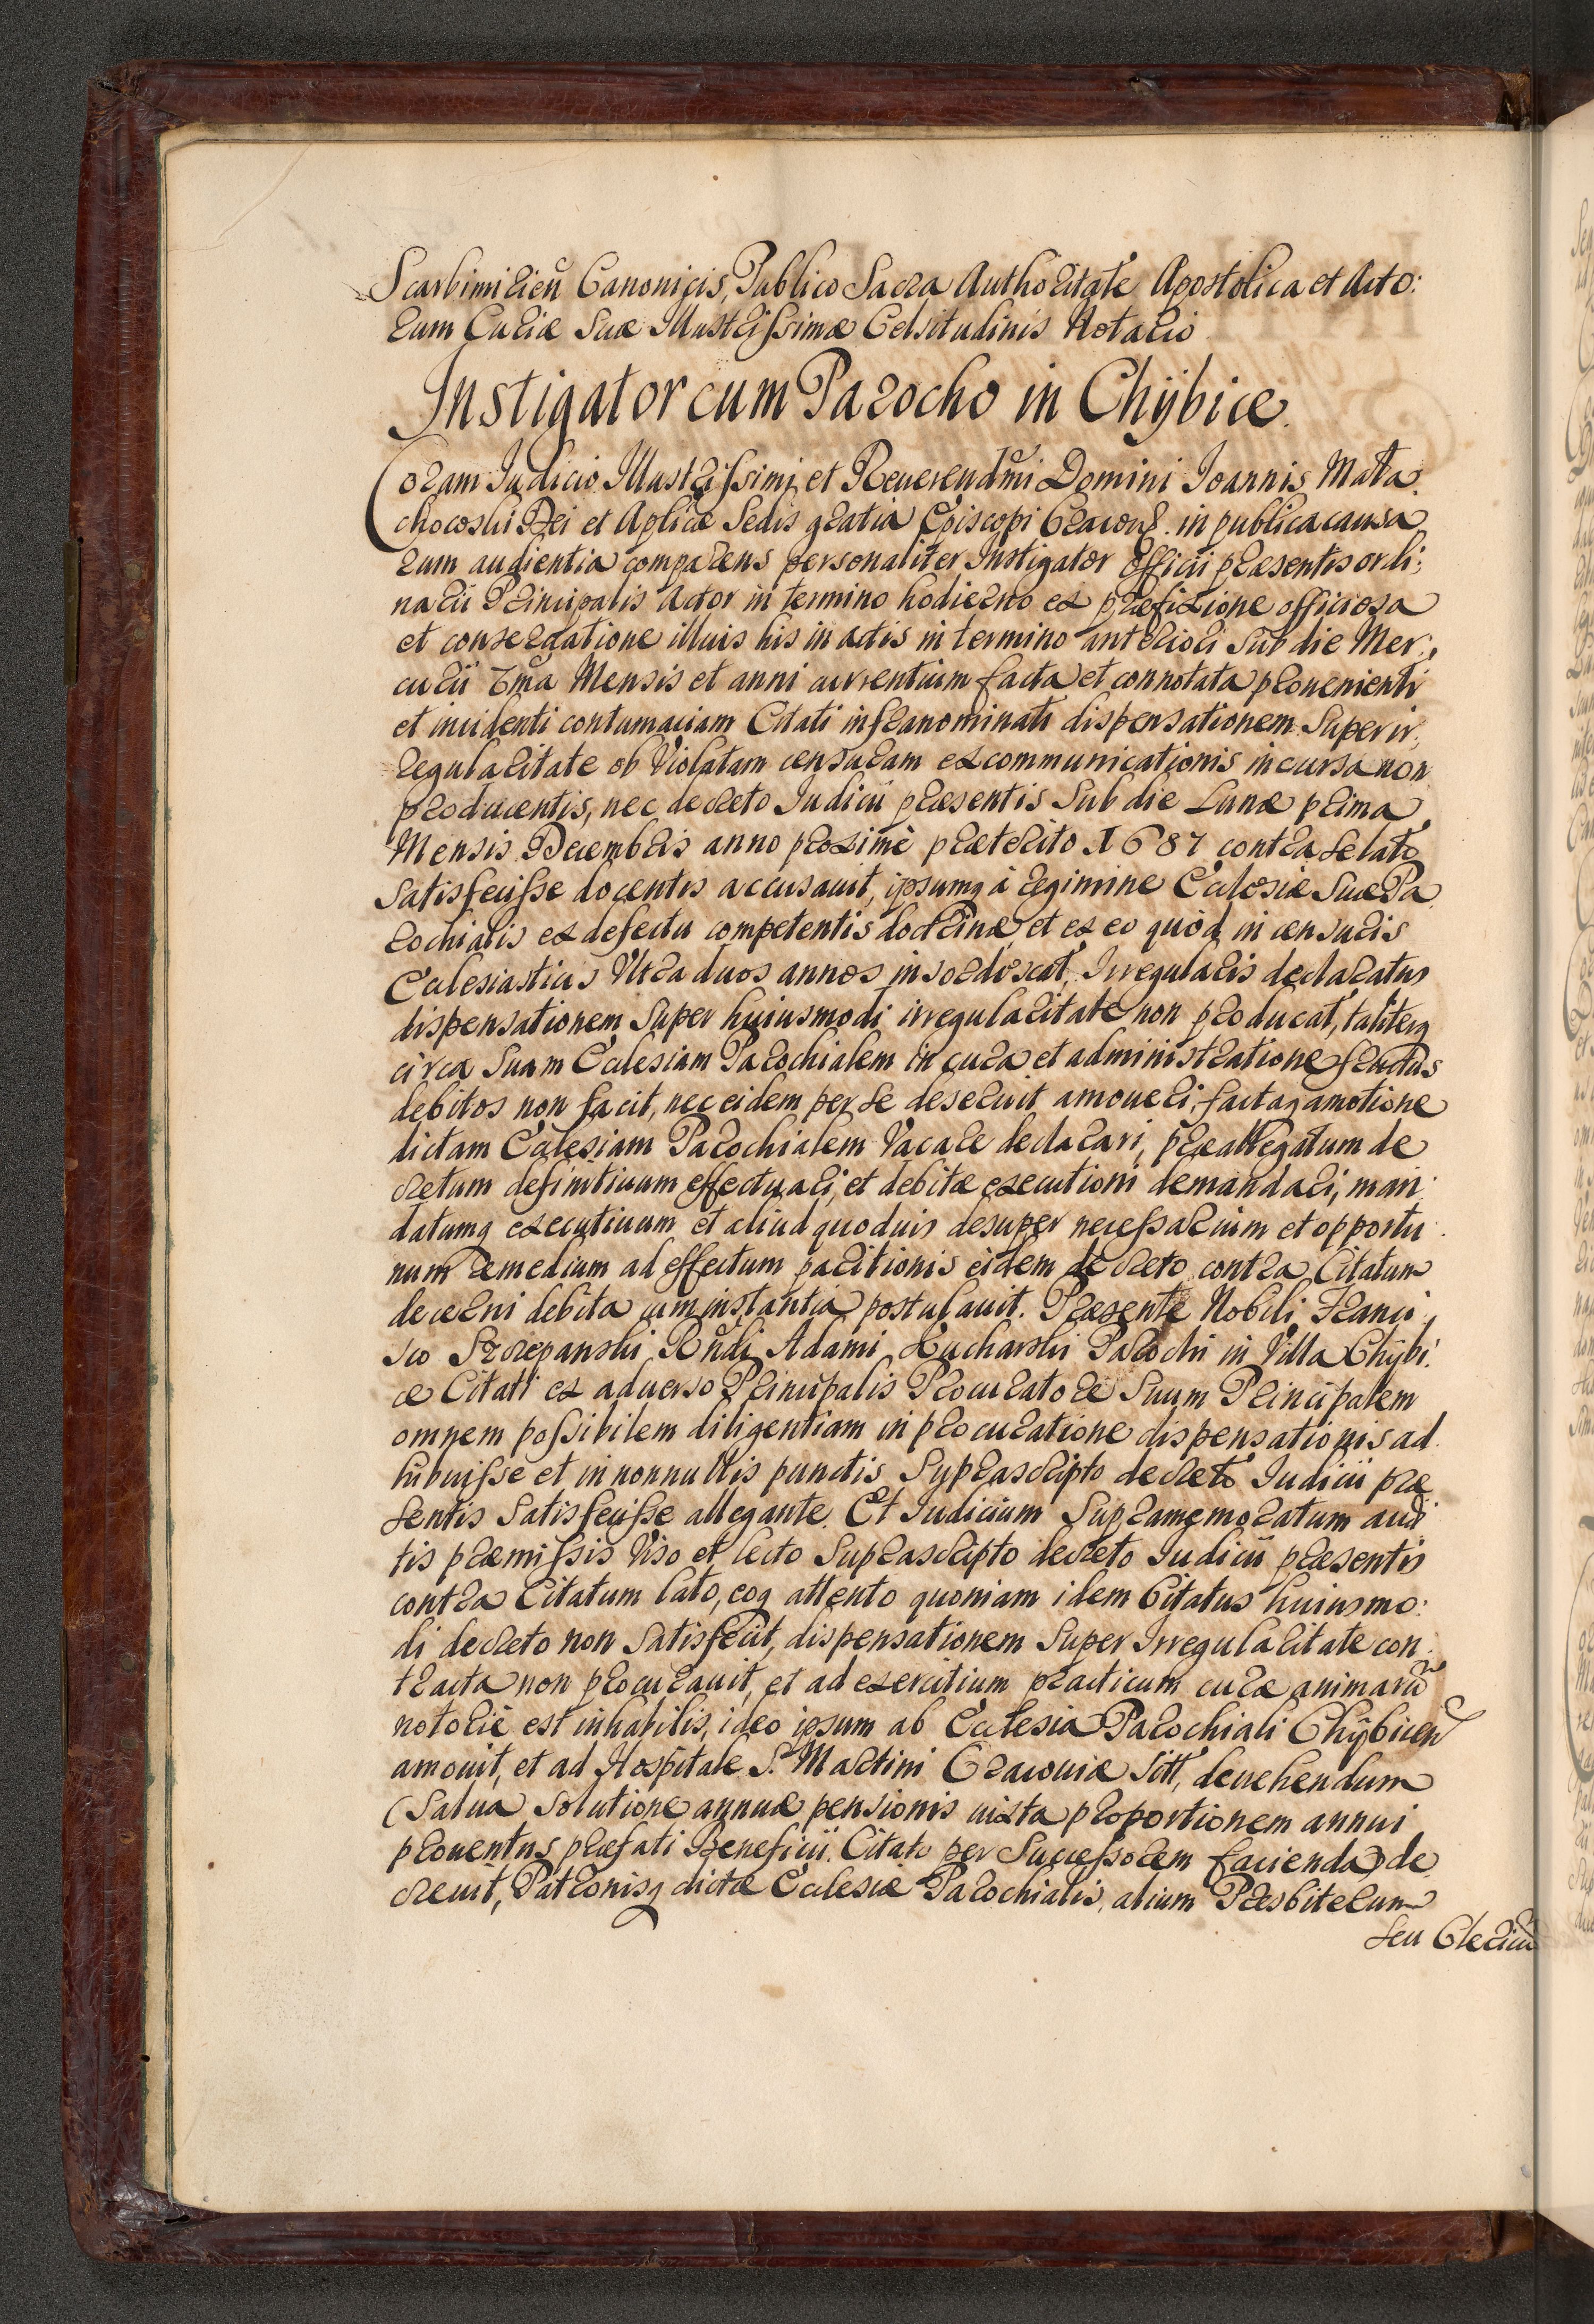 Scarbimirień Canonicis, Publico Sacra Authoritate Apostolica et Acto:
rum Curiæ Suæ Illustrissimæ Celsitudinis Notario
Instigator cum Parocho in Chÿbice.
Coram Iudicio Illustrissimi et Reuerendm̃i Domini Ioannis Mała.
chocoski Dei et Aplicæ Sedis gratia Episcopi Cracouẽ. in publica causa
rum audientia comparens personaliter Instigator Officii præsentis ordi:
narii Principalis Actor in termino hodierno ex præfixione officiosa
et conseruatione illius his in actis in termino anteriori sub die Mer:
curii 7ma Mensis et anni currentium facta et connotata prouenienti
et incidenti contumaciam Citati infranominati dispensationem Super ir:
regularitate ob Violatam censuram excommunicationis incursa non
producentis, nec decreto Iudicii præsentis Sub die Lunæ prima
Mensis Decembris anno proximè præterito 1687 contra se lato
Satisfecisse docentis accusauit, ipsumq à regimine Ecclesiæ Suæ Pa
rochialis ex defectu competentis doctrinæ, et ex eo quòd in censuris
Ecclesiasticis Vltra duos annos insordescat, Irregularis declaratus
dispensationem Super huiusmodi irregularitate non producat, taliterq
circa Suam Ecclesiam Parochialem in cura et administratione fructus
debitos non facit, nec eidem per se deseruit amoueri, factaq amotione
dictam Ecclesiam Parochialem Vacare declarari, præallegatum de
cretum definitiuum effectuari, et debitæ executioni demandari, man:
datumq executiuum et aliud quoduis desuper necessarium et opportu
num remedium ad effectum paritionis eidem decreto contra Citatum
decerni debita cum instantia postulauit. Præsente Nobili Franci:
sco Szczepanski Rñdi Adami Kucharski Parochi in Villa Chÿbi:
ce Citati ex aduerso Principalis Procuratore Suum Principalem
omnem possibilem diligentiam in procuratione dispensationis ad
hibuisse et in nonnullis punctis Suprascripto decreto Iudicii præ
sentis Satisfecisse allegante. Et Iudicium Supramemoratum audi
tis præmissis Viso et lecto Suprascripto decreto Iudicii præsentis
contra Citatum lato, eoq attento quoniam idem Citatus huiusmo:
di decreto non Satisfecit, dispensationem Super Irregularitate con
tracta non procurauit, et ad exercitium practicum curæ animarũ
notoriè est inhabilis, ideo ipsum ab Ecclesia Parochiali Chÿbiceń
amouit, et ad Hospitale S. Martini Cracouiæ Sitt, deuehendum
(Salua Solutione annuæ pensionis iuxta proportionem annui
prouentus præfati Beneficii Citato per Successorem facienda) de
creuit, Patronisq dictæ Ecclesiæ Parochialis, alium Præsbiterum
Seu Clericũ